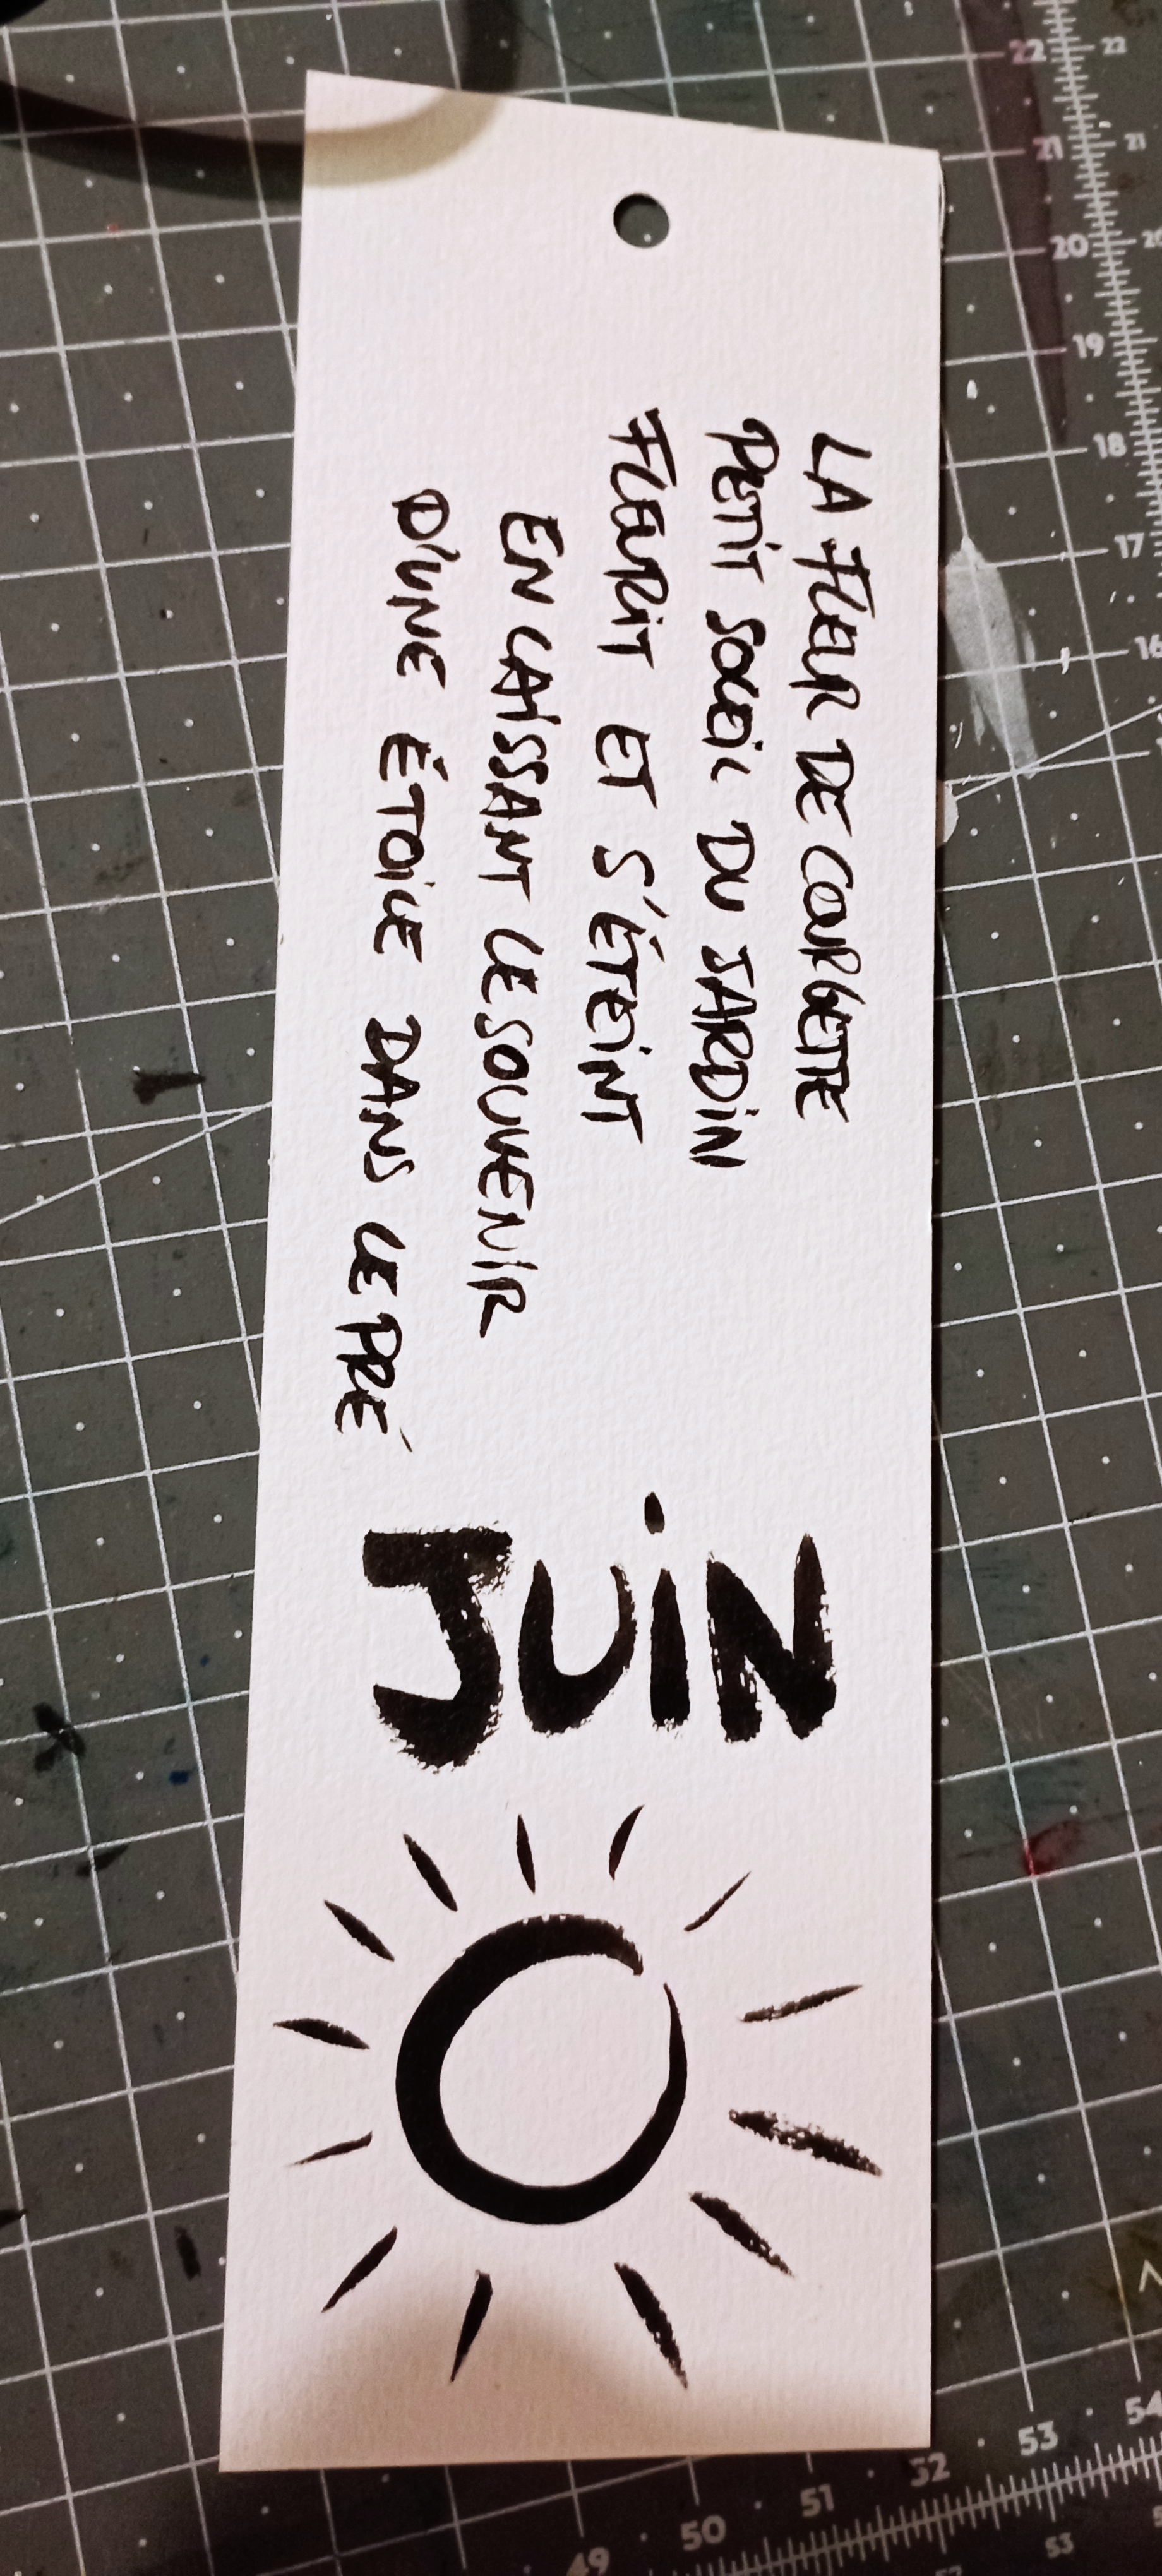 LA FLEUR DE COURGETTE
PETIT SOLEIL DU JARDIN
FLEURIT ET S'ÉTEINT
EN LAISSANT LE SOUVENIR
D'UNE ÉTOILE DANS LE PRÉ
JUIN
22 22
21 21
20 20
19
18
17
16
49 50 51 52 53 54
53